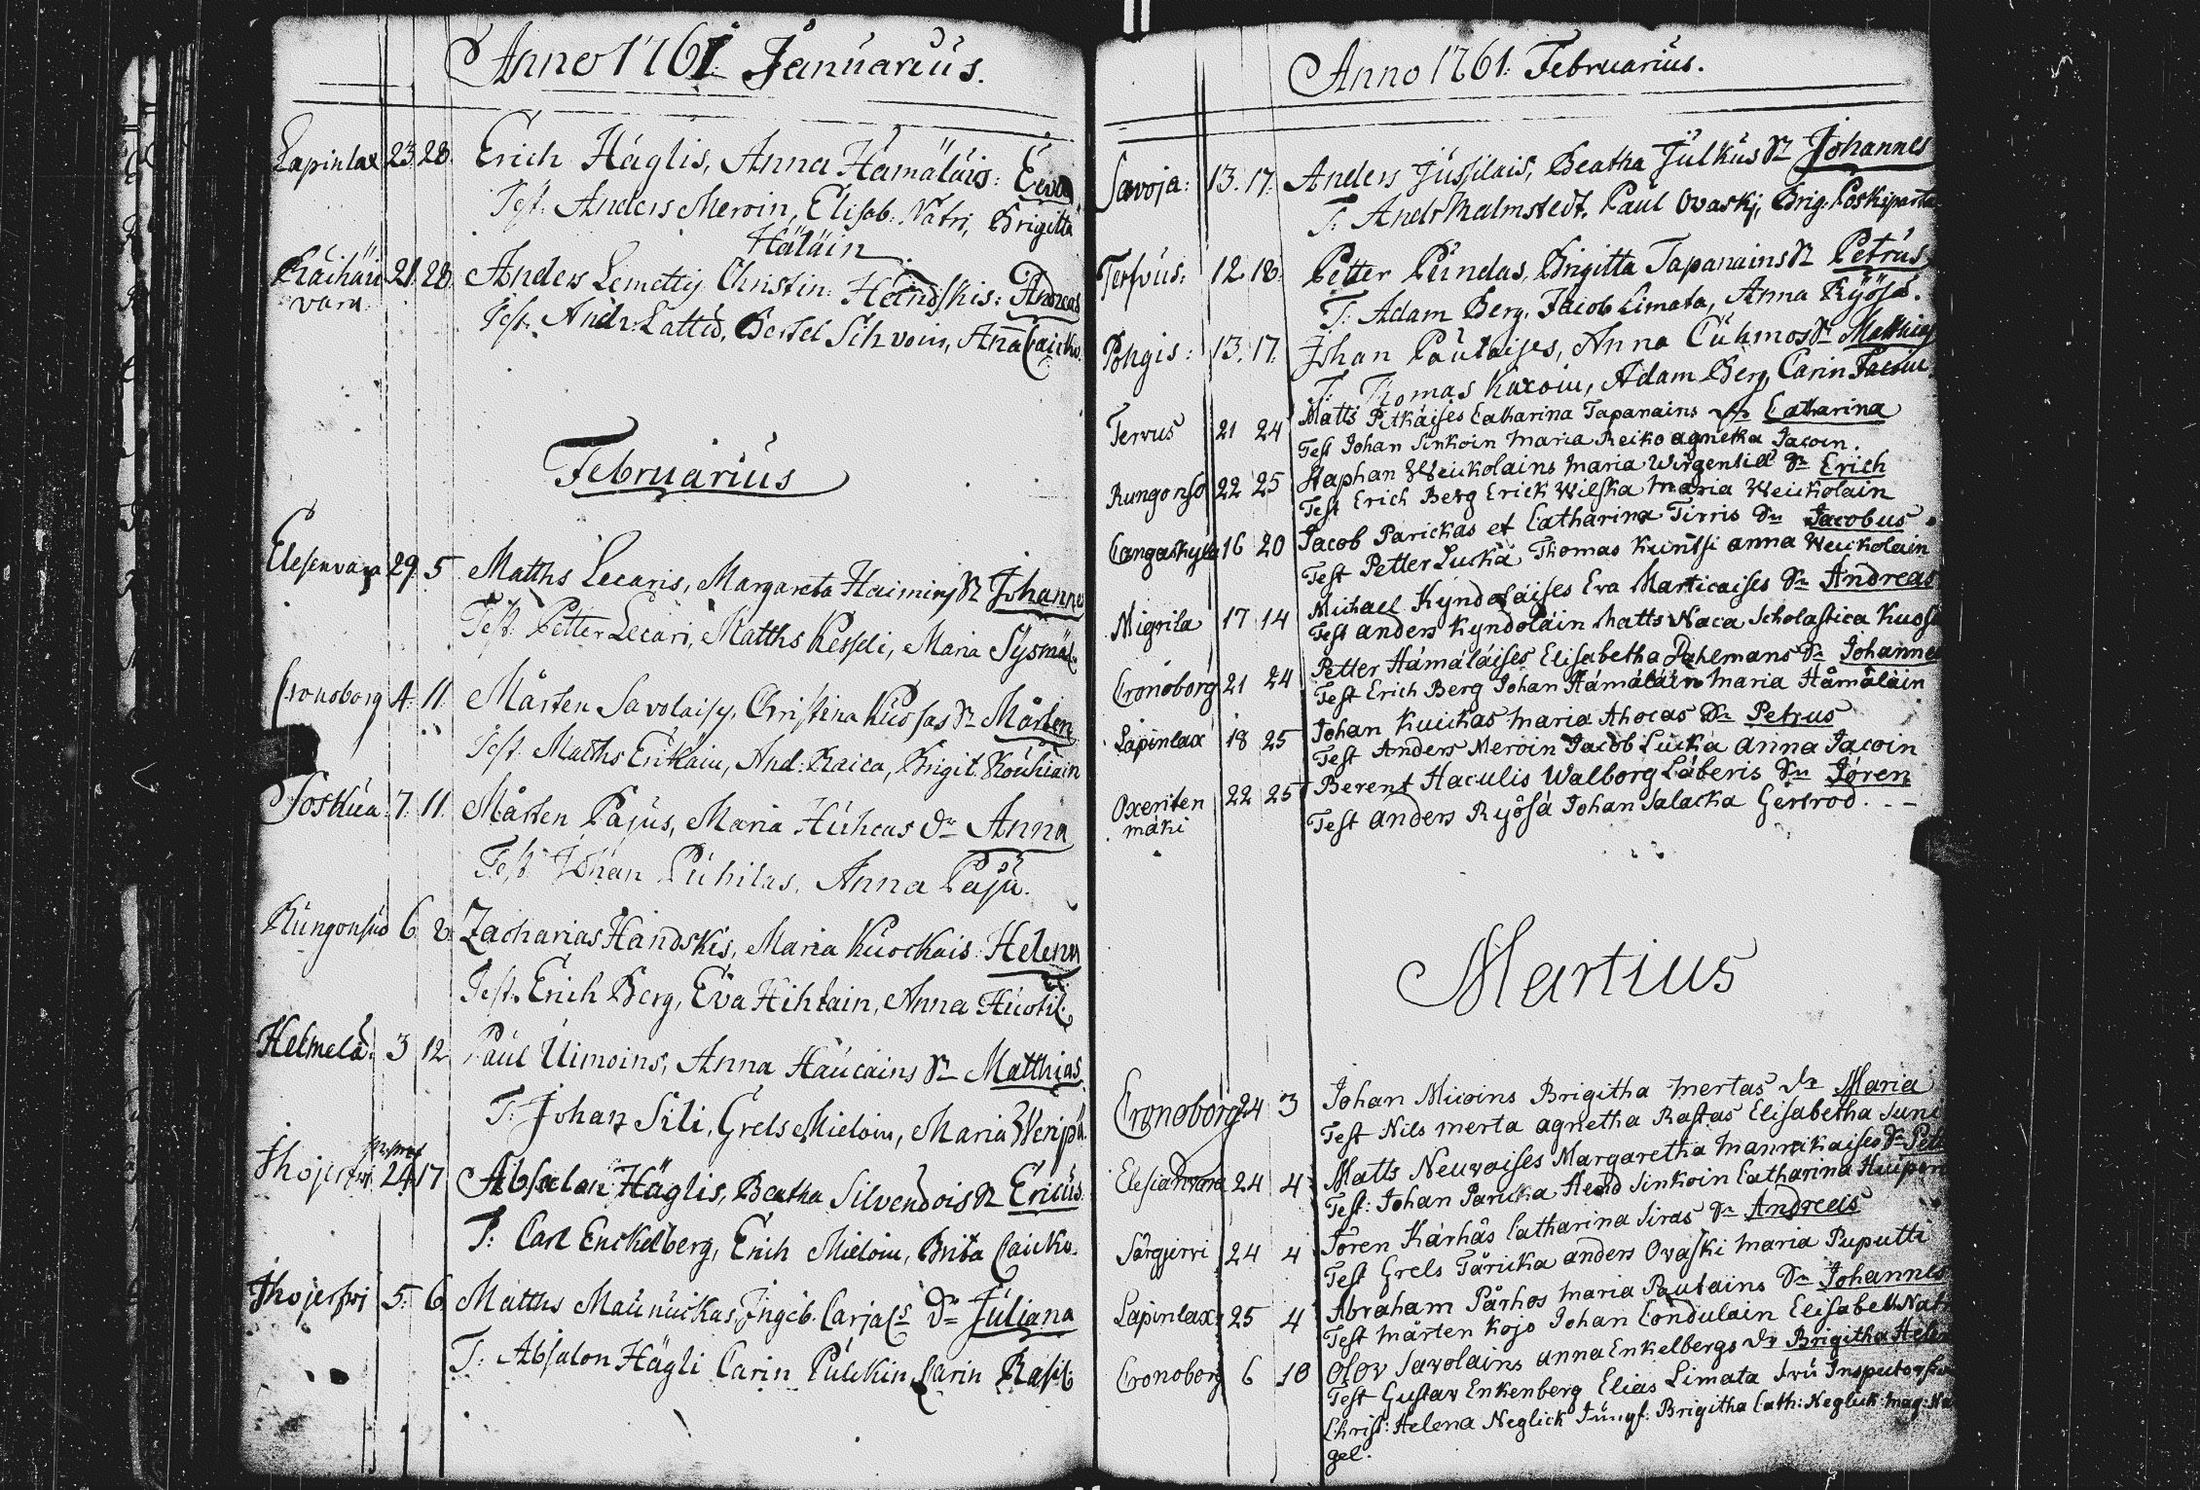 Anno 1761 Januarius.
Lapinlax 23 28. Erich Häglis, Anna Hämäläis: Eva
Test. Anders Meroin, Elisab. Natri, Brigitta
Häläin
Räihän 21. 28. Anders Lemettij Christin: Handskis: Andreas
vara Test. Andr. Lattu, Bertel Sihvoin, Anna Caicko.
Februarius
Elesenvara 29. 5. Matths Lecaris, Margareta Haiminj Sn Johannes
Test. Petter Lecari, Matths Kesseli, Maria Sysmäl.
Cronoborg 4. 11. Mårten Savolaisj, Christina Kuosas Sn Mårten
Test. Matths Erikäin, And: Raica, Brigit. Kouhiain
Soskua 7. 11. Mårten Pajus, Maria Huhcas dr Anna
Test. Johan Puhilas, Anna Paju.
Rungonsuo 6. 8. Zacharias Handskis, Maria Kuockais: Helena
Test. Erich Berg, Eva Hihlain, Anna
Helmelä. 3 12 Paul Uimoins, Anna Haucains Sn Matthias
T: Johan Sili, Grels Mieloin, Maria
Ihojerfwi 24. 17 Absalon Häglis, Beatha Silvendois Sn Ericus.
T: Carl Enckelberg, Erich Mieloin, Brita Caicko.
Ihojerfwi 5. 6 Matths Maunuckas, Ingeb. Carjals Dr Juliana
T: Absalon Hägli Carin Pulckin, Carin Rasil.
Anno 1761. Februarius.
Savoja: 13. 17. Anders Jussilais, Beatha Julkus Sn Johannes
T: Andr Malmstedt, Paul Ovaskj, Brig. Poskiparta
Terfvus: 12 18. Petter Pündas, Brigitta Tapanains Sn Petrus
T: Adam Berg, Jacob Limata, Anna Ryösä.
Pohgis: 13. 17. Johan Paulaises, Anna Cuhmos Sn Matthias
T: Thomas Kaxoin, Adam Berg, Carin
Tervus 21 24 Matts Pitkäises Catharina Tapanains dr Catharina
Test Johan Sinkoin Maria Reiko agneta Jacoin.
Rungonso 22 25 Staphan Weickolains Maria Wirgentill Sn Erich
Test Erich Berg Erick Wilska Maria Weickolain
Cangaskylä 16 20 Jacob Parickas et Catharina Tirris Sn Jacobus
Test Petter Luckä Thomas Kuntsi anna Weickolain
Migrila 17 14 Michael Kyndoläises Eva Marticaises Sn Andreas
Test anders Kyndoläin Matts Naca Scholastica
Cronoborg 21 24 Petter Hämäläises Elisabetha Pahlmans Sn Johannes
Test Erich Berg Johan Hämäläin Maria Hämäläin
Lapinlax 18 25 Johan Kuickas Maria Ahocas Sn Petrus
Test Anders Meroin Jacob Luckä anna Jacoin
Oxenten 22 25 Berent Haculis Walborg Läberis Sn Jören
mäki Test anders Ryösä Johan Salacka Gertrod. - -
Martius
Cronoborg 24 3 Johan Micoins Brigitha Mertas dr Maria
Test Nils Merta agnetha Rastas Elisabetha
Elesiänvara 24 4 Matts Neuvaises Margaretha Mannikaises Sn
Test: Johan Paricka Hend Sinkoin Catharina
Särgjervi 24 4 Jören Kärhäs Catharina Siras Sn Andreas
Test Grels Täricka anders Ovaski Maria Puputti
Lapinlax 25 4 Abraham Pärhos Maria Paulains Sn Johannes
Test Mårten Kojo Johan Condulain Elisabeth
Cronoborg 6 10 Olov Savolains anna Enkelbergs dr Brigitha
Test Gustav Enkenberg Elias Limata fru Inspector
Christ: Helena Neglick Jungf: Brigitha Cath: Neglick Mag:
gel.